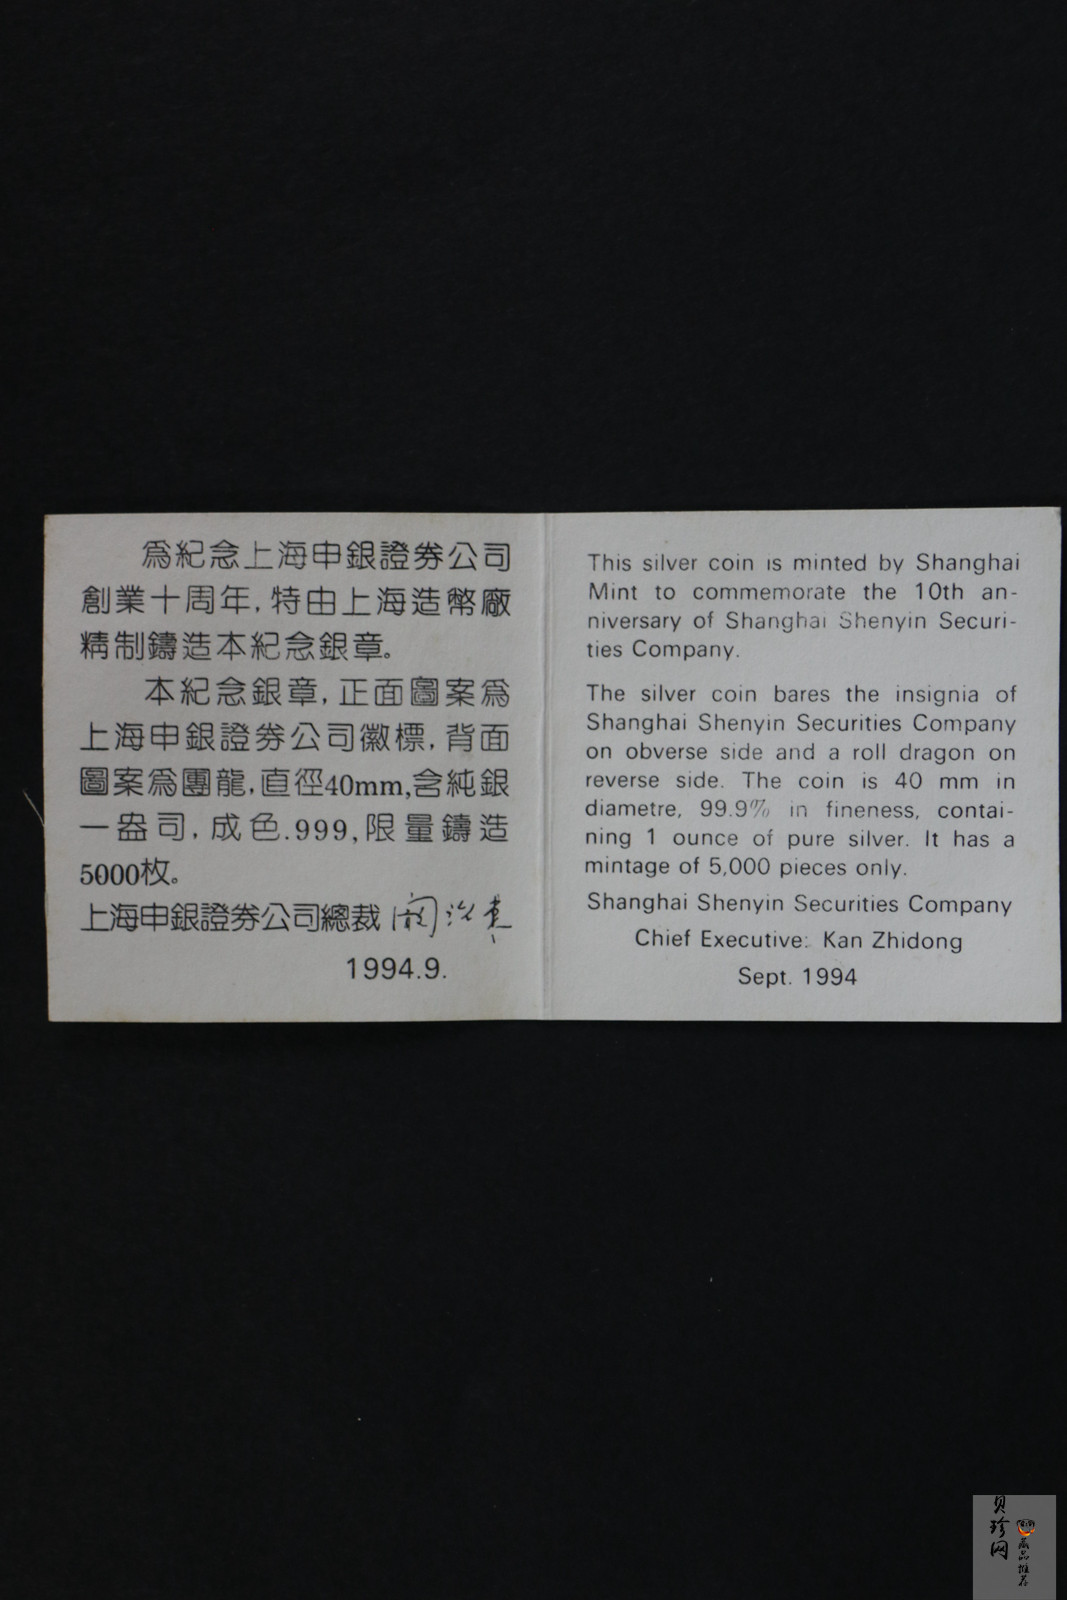 爲紀念上海申銀證券公司
創業十周年,特由上海造幣廠
精制鑄造本紀念銀章。
本紀念銀章,正面圖案爲
上海申銀證券公司徽標,背面
圖案爲團龍,直徑40mm,含純銀
一盎司,成色.999,限量鑄造
5000枚。
上海申銀證券公司總裁 闞治東
1994.9.
This silver coin is minted by Shanghai
Mint to commemorate the 10th an-
niversary of Shanghai Shenyin Securi-
ties Company.
The silver coin bares the insignia of
Shanghai Shenyin Securities Company
on obverse side and a roll dragon on
reverse side. The coin is 40 mm in
diametre, 99.9% in fineness, contai-
ning 1 ounce of pure silver. It has a
mintage of 5,000 pieces only.
Shanghai Shenyin Securities Company
Chief Executive: Kan Zhidong
Sept. 1994
贝珍网
藏品推荐